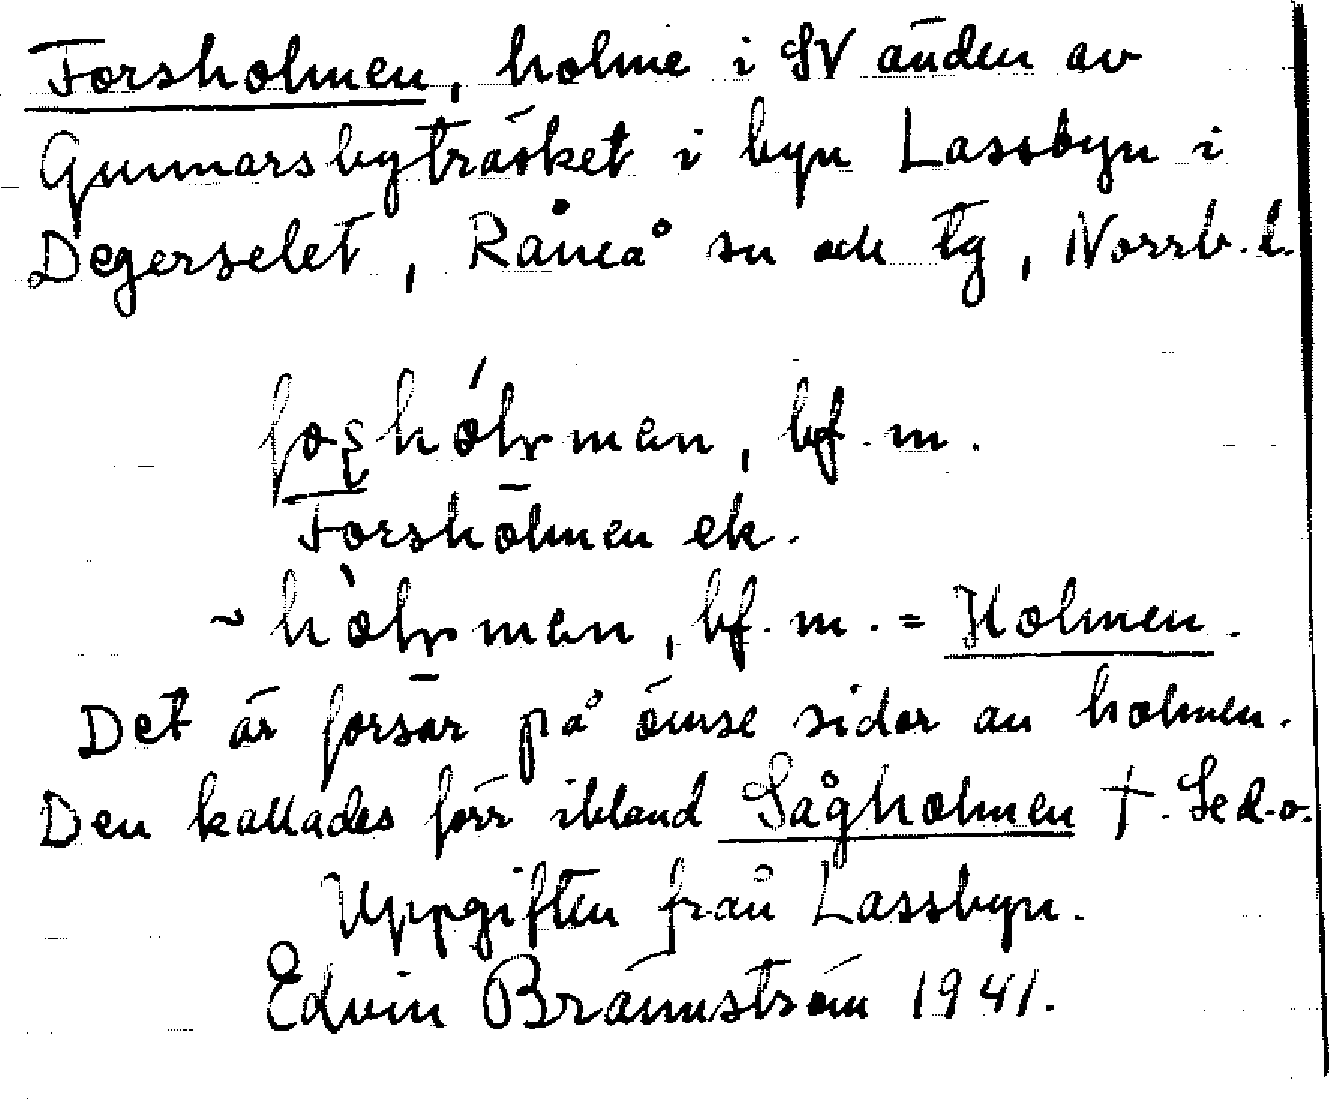 Forsholmen, holme i SV änden av
Gunnarsbyträsket i byn Lassbyn i
Degerselet, Råneå sn och tg, Norrb. l.
bf. m.
Forshōlmen ek.
~ bf. m. = Holmen.
Det är forsar på ömse sidor av holmen.
Den kallades förr ibland Sågholmen †. Se d. o.
Uppgiften från Lassbyn.
Edvin Brännström 1941.